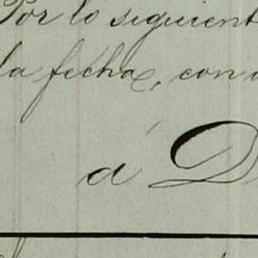 Por lo siguient
la fecha, con
á D